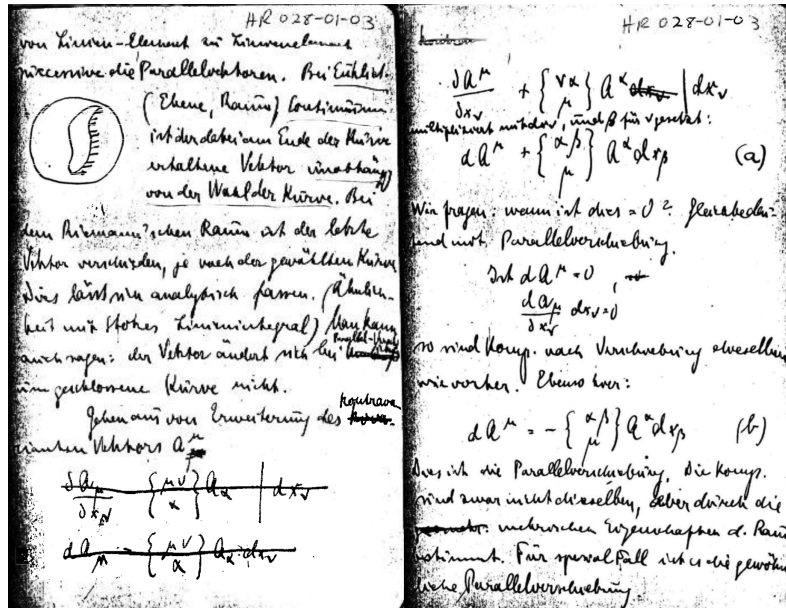 HR 028-01-03
von Linien-Element zu Linienelement
successive die Parallelvektoren. Bei Euklid.
(Ebene, Raum) Continuum
ist der dabei am Ende der Kurve
erhaltene Vektor unabhängig
von der Wahl der Kurve. Bei
dem Riemann'schen Raum ist der letzte
Vektor verschieden, je nach der gewählten Kurve
Dies lässt sich analytisch fassen. (Ähnlich-
keit mit Stokes Linienintegral) Man kann
auch sagen: der Vektor ändert sich bei Parallel-Versch.
um geschlossene Kurve nicht.
Gehen aus von Erweiterung des kontrava-
rianten Vektors A^μ
∂A_μ/∂x_ν {μν α} A_α | dx_ν
dA_μ - {μν α} A_α dx_ν
HR 028-01-03
∂A^μ/∂x_ν + {να μ} A^α dx_ν | dx_ν
multipliziert mit dx_ν, und β für ν gesetzt:
dA^μ + {αβ μ} A^α dx_β (a)
Wir fragen: wann ist dies = 0? Gleichbedeu-
tend mit Parallelverschiebung.
Ist dA^μ = 0,
dA_μ/∂x_ν dx_ν = 0
so sind Komp. nach Verschiebung dieselben
wie vorher. Ebenso hier:
dA^μ = - {αβ μ} A^α dx_β (b)
Dies ist die Parallelverschiebung. Die Komp.
sind zwar nicht dieselben, aber durch die
metrischen Eigenschaften d. Raum
bestimmt. Für spezial Fall ist es die gewöhn-
liche Parallelverschiebung.